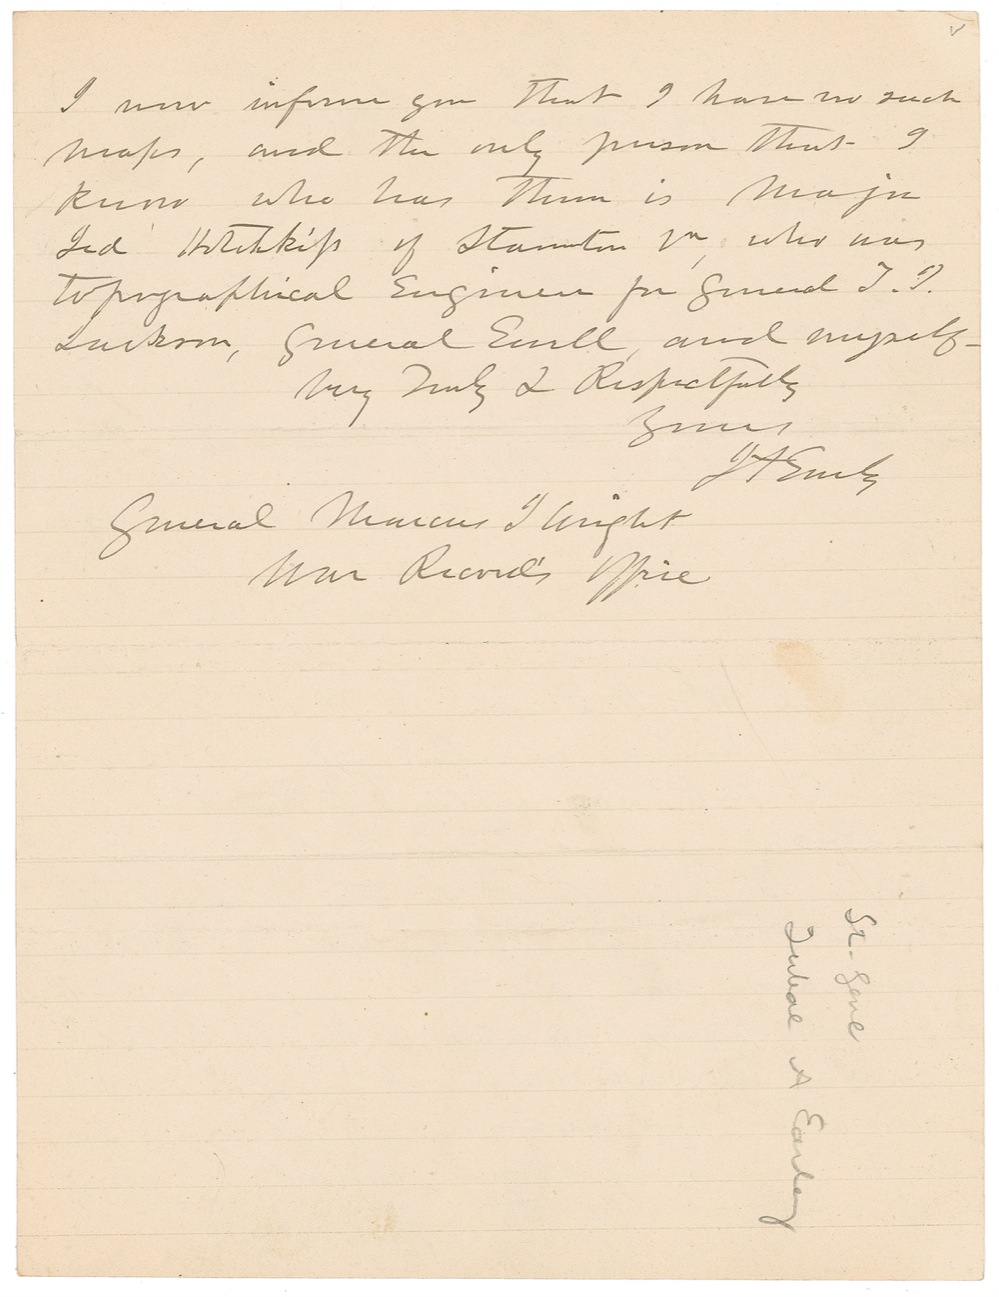 I now inform you that I have no such
maps, and the only person that I
know who has them is Major
Jed Hotchkiss of Staunton Va, who was
topographical Engineer for General T. J.
Jackson, General Ewell, and myself–
Very Truly & Respectfully
Yours
J A Early
General Marcus J Wright
War Records Office
Lt. Genl
Jubal A Early